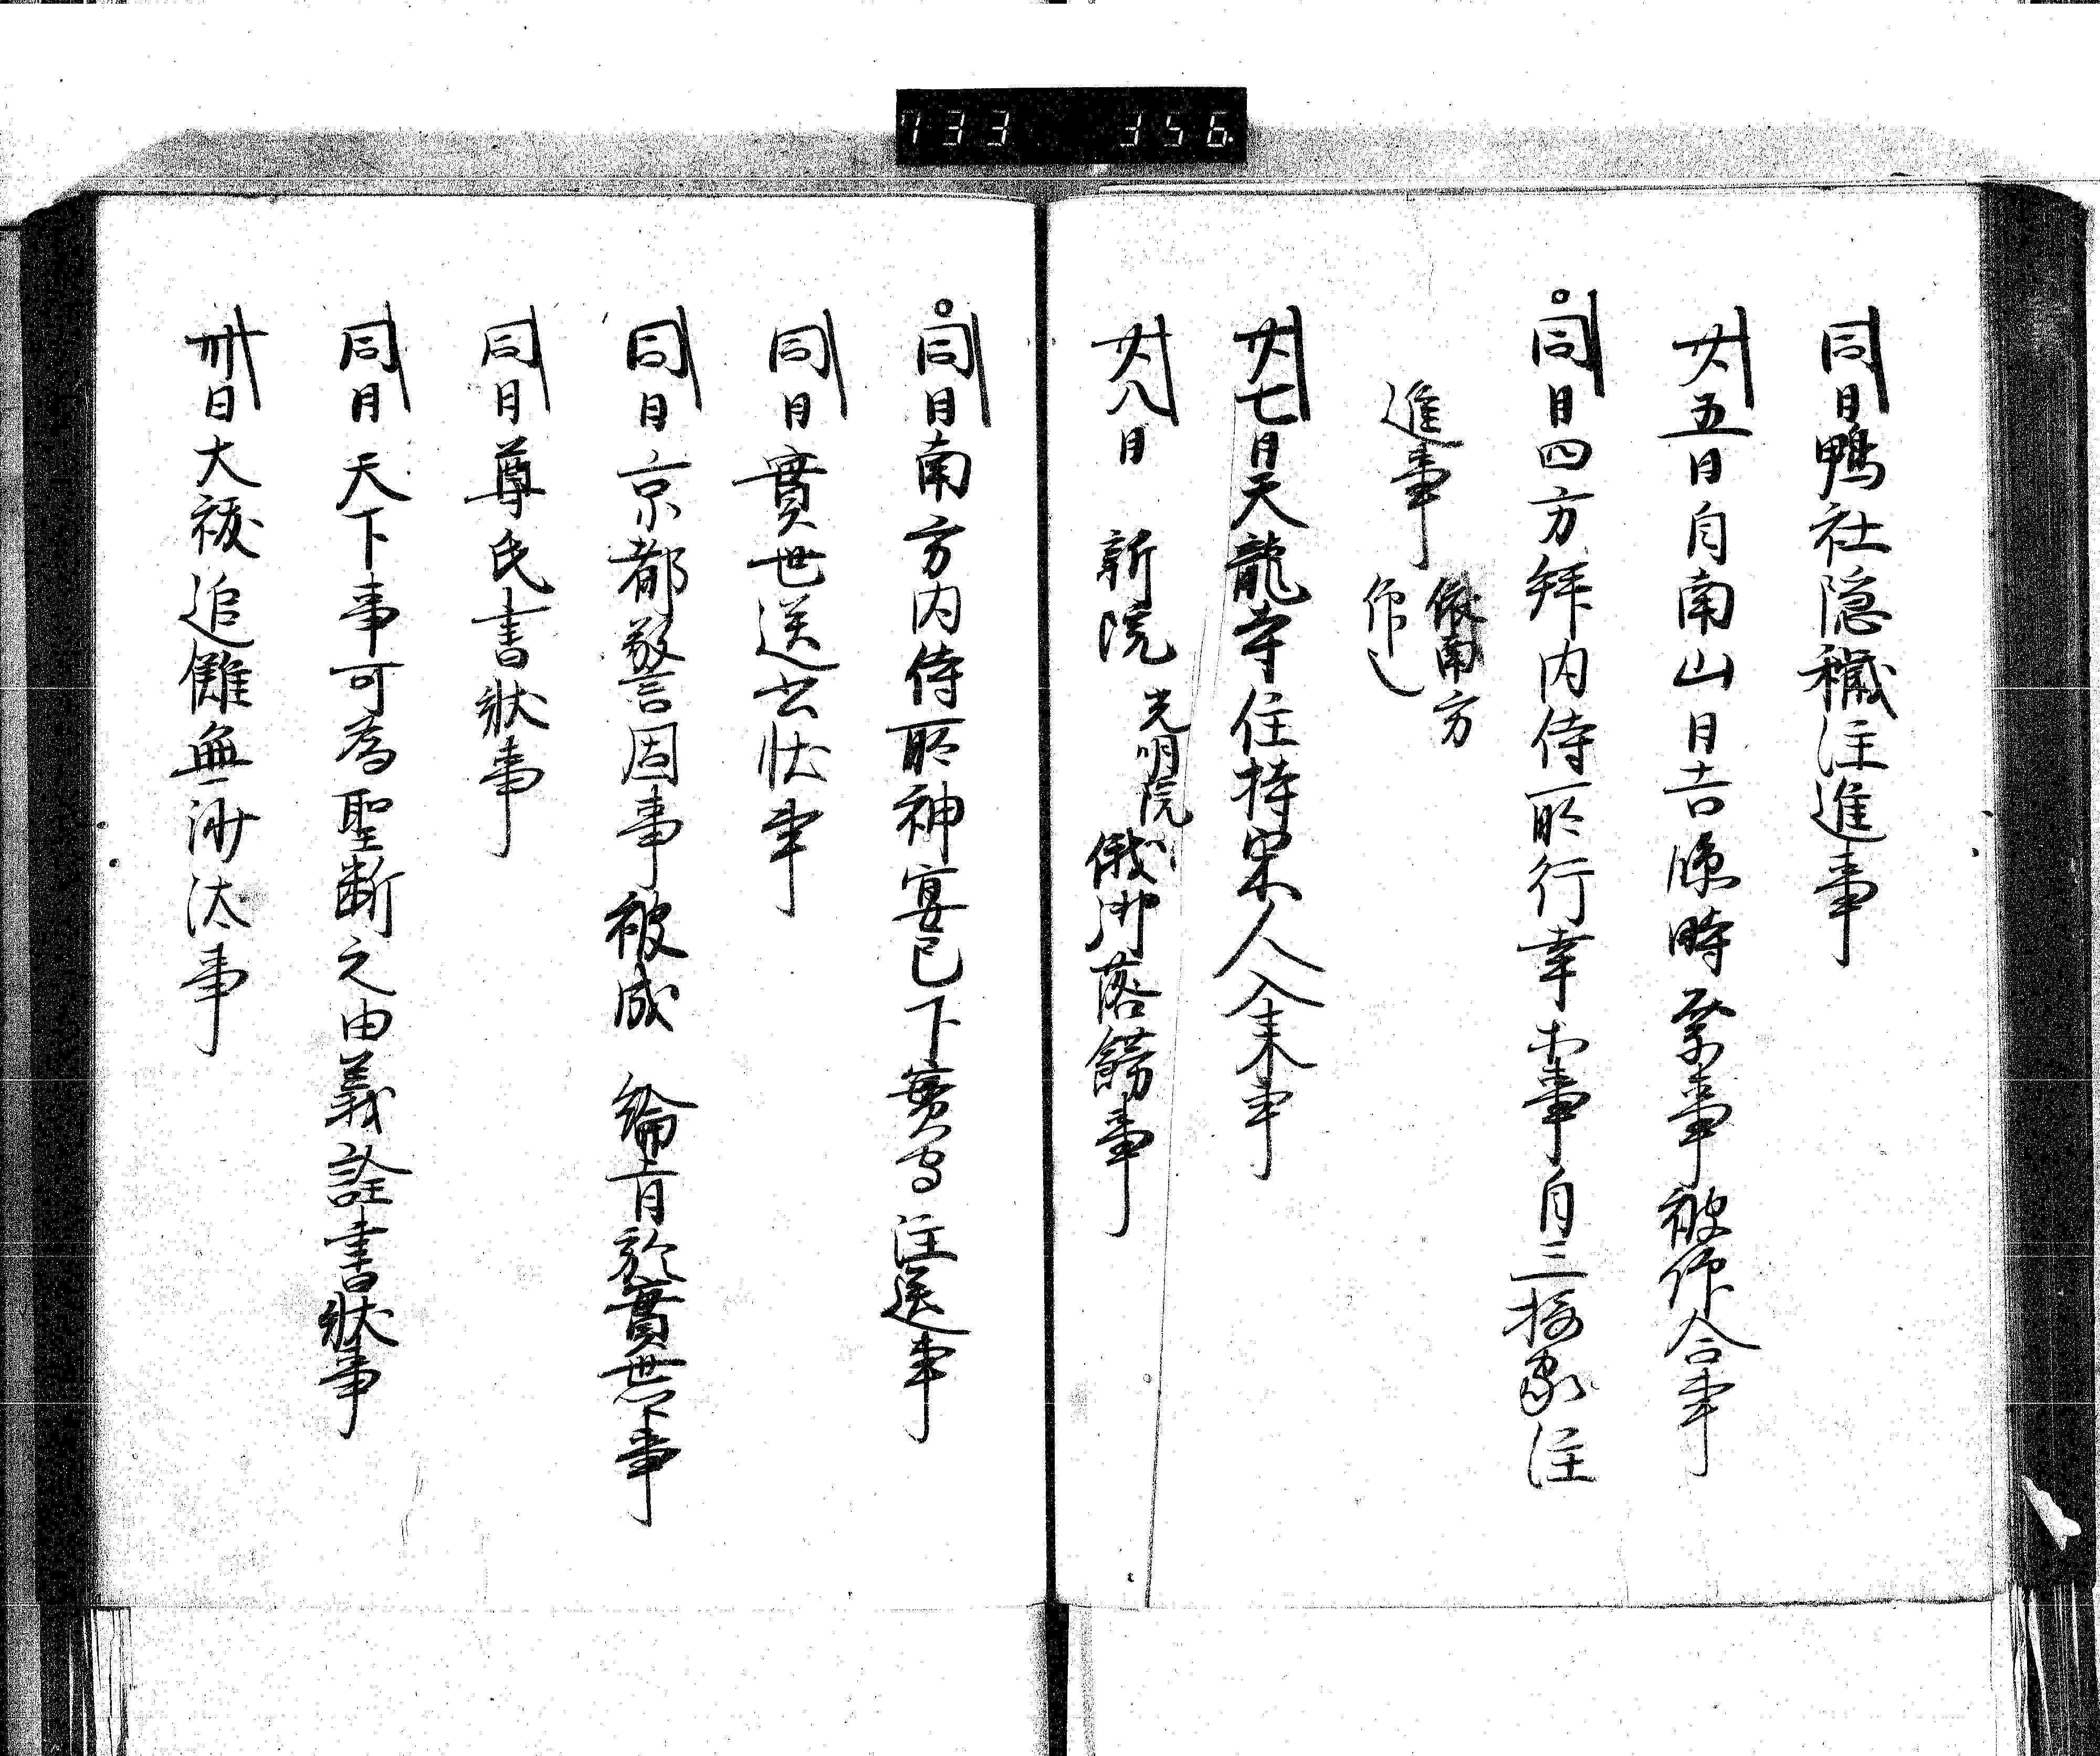 133 156
同日鴨社隠穢注進事
廿五日自南山日吉臨時祭事被仰合事
同日四方拜内侍所行幸等事自三条家注
進事 依南方
仰也
廿七日天龍寺住持宋人入来事
廿八日 新院 光明院 俄御落餝事
同日南方内侍所神宴已下實守注送事
同日實世送書状事
同日京都警固事被成 綸旨於實世卿事
同日尊氏書状事
同日天下事可為聖断之由義詮書状事
卅日大祓追儺無沙汰事